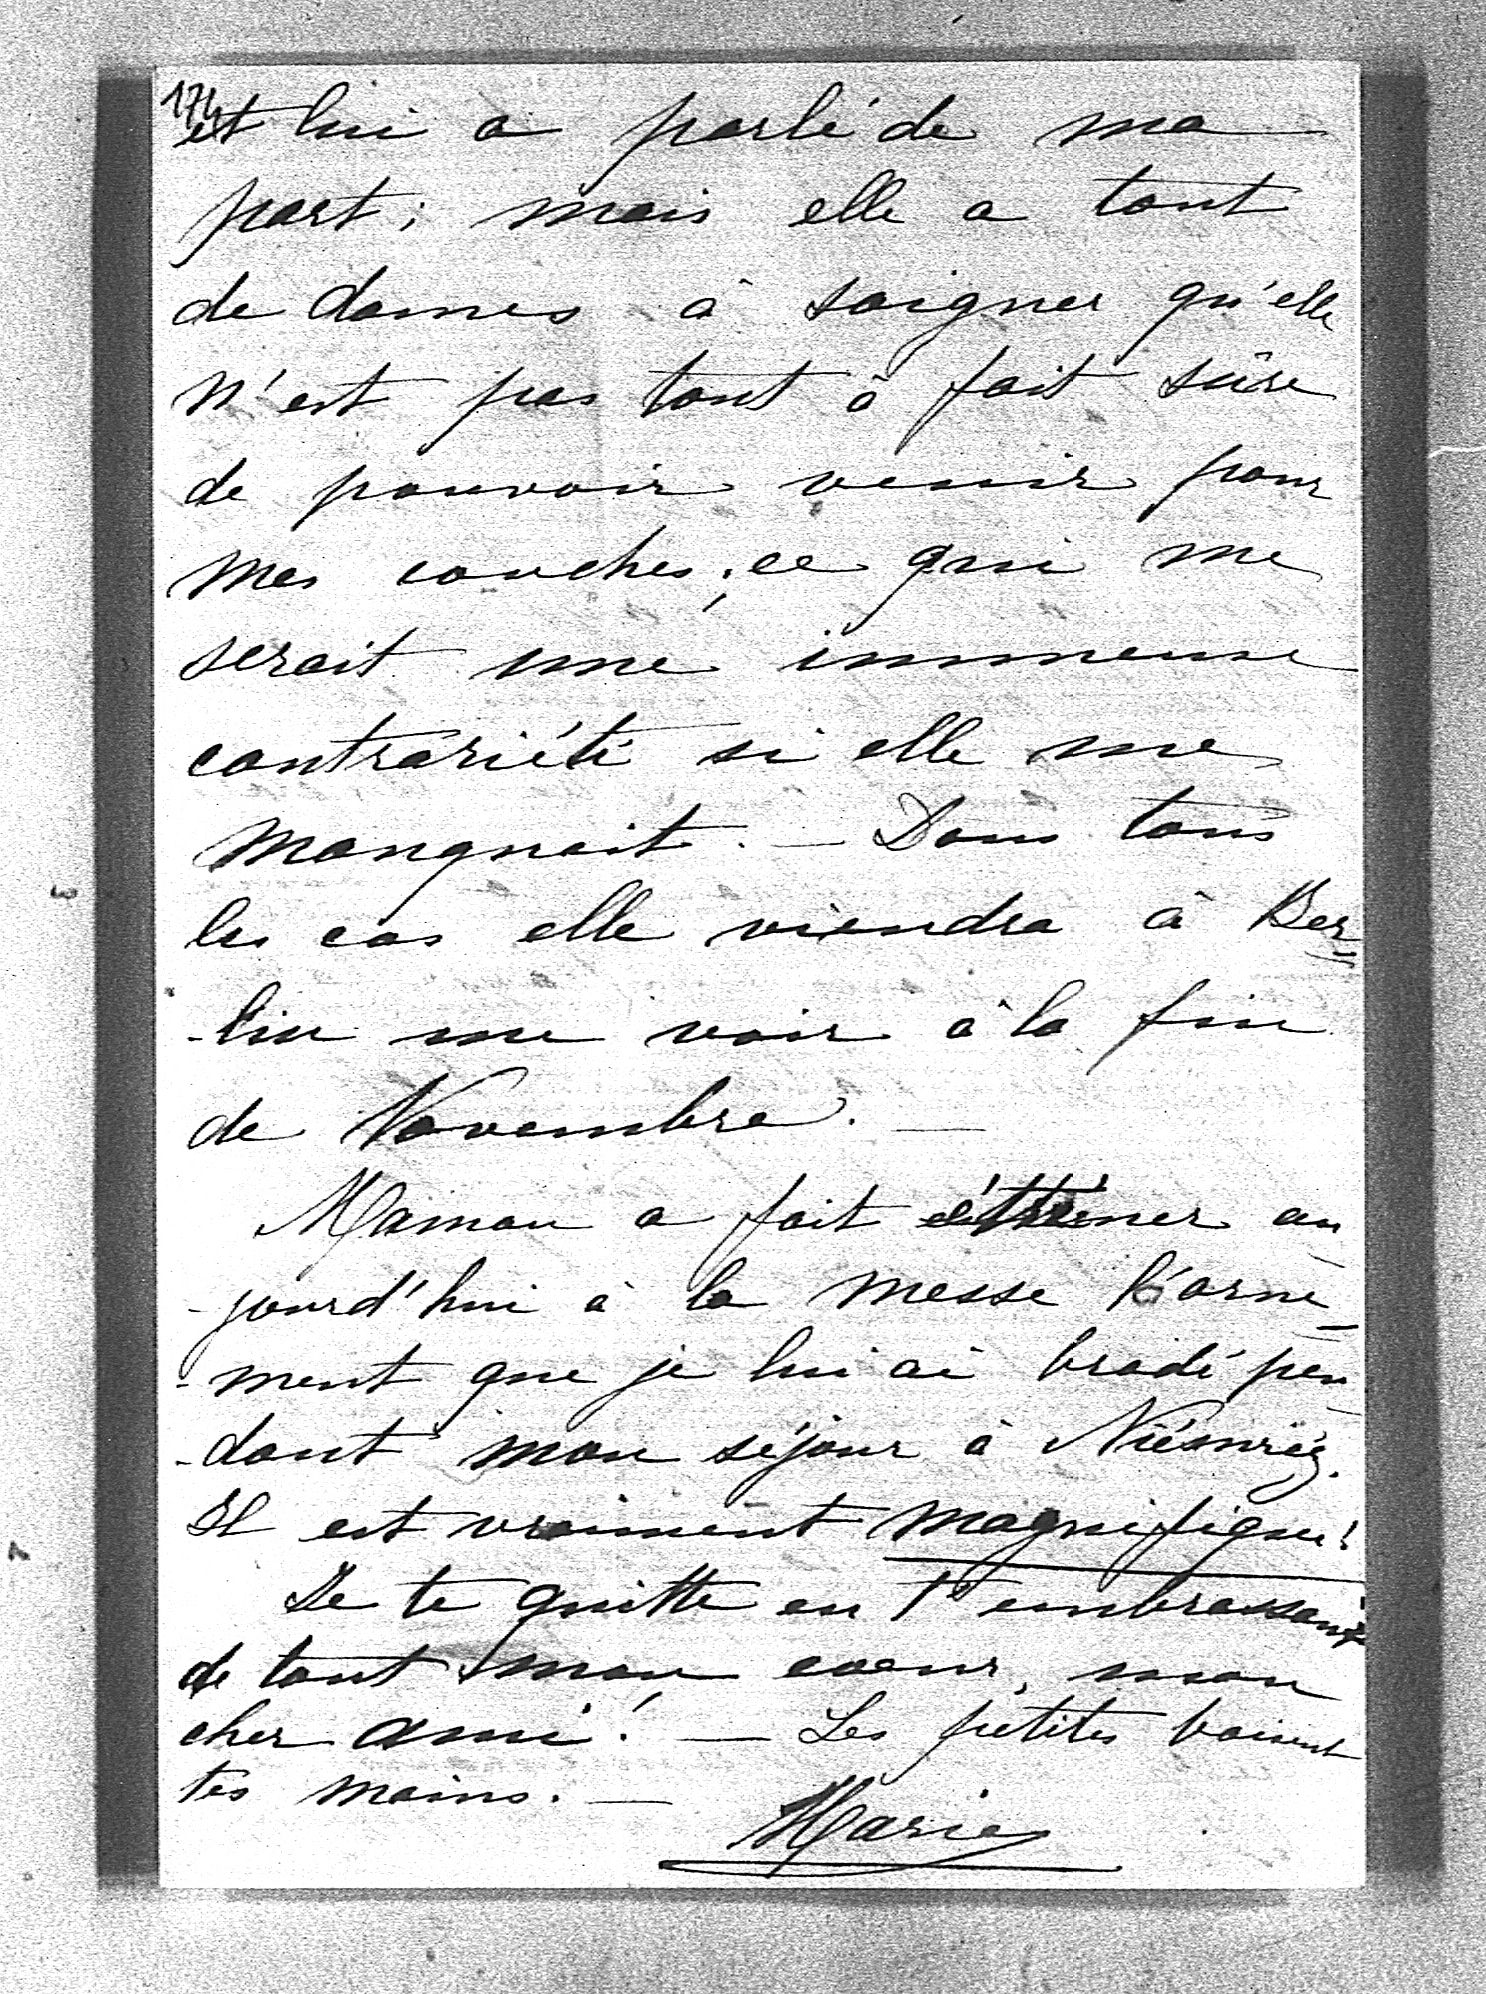 174
et lui a parlé de ma
part; mais elle a tant
de dames à soigner qu'elle
n'est pas tout à fait sûre
de pouvoir venir pour
mes couches; ce qui me
serait une immense
contrariété si elle me
manquait. — Dans tous
les cas elle viendra à Ber=
-lin me voir à la fin
de Novembre. —
Maman a fait étrenner au
-jourd'hui à la messe l'orne-
-ment que je lui ai brodé pen-
-dant mon séjour à Niéswiéz.
Il est vraiment magnifique!
Je te quitte en t'embrassant
de tout mon coeur, mon
cher ami! — Les petites baisent
tes mains. —
Marie